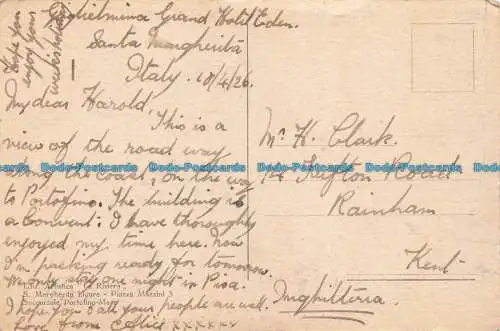 Guglielmina Grand Hotel Eden.
Santa Margherita
Italy. 18/4/26.
Hope you
enjoy your
week's holiday
My dear Harold,
This is a
view of the road way
along the coast, on the way
to Portofino. The building is
a Convent. I have thoroughly
enjoyed my time here. Now
I'm packing ready for tomorrow.
We may stay one night in Pisa.
I hope you & all your people are well.
Love from Alice xxxxxx
Mr H. Clark.
Road
Rainham
Kent
Inghilterra.
Artistica "La Riviera"
S. Margherita Ligure - Piazza Mazzini 3
Succursale Portofino-Mare
Dodo-Postcards Dodo-Postcards Dodo-Postcards Dodo-Postcards Dodo-Postcards